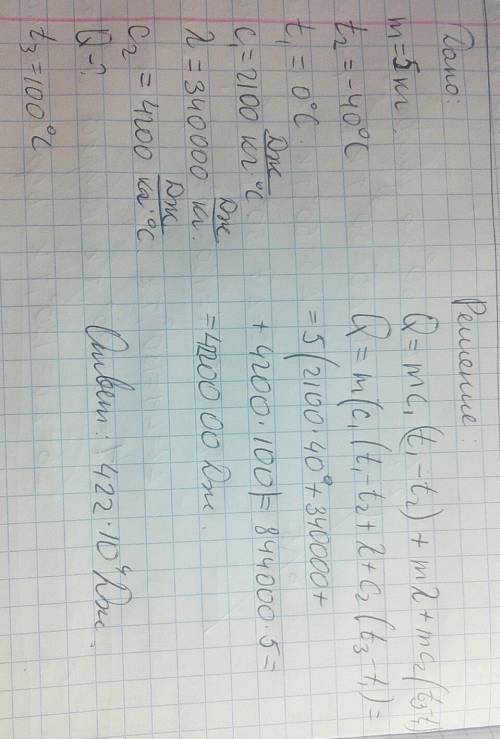 Дано:
m = 5 кг.
t₂ = -40°C
t₁ = 0°C.
c₁ = 2100 Дж/кг·°C.
λ = 340000 Дж/кг.
c₂ = 4200 Дж/кг·°C.
Q - ?
t₃ = 100°C
Решение:
Q = mc₁(t₁-t₂) + mλ + mc₂(t₃-t₁)
Q = m(c₁(t₁-t₂ + λ + c₂(t₃-t₁) =
= 5(2100·40° + 340000 +
+ 4200·100) = 844000·5 =
= 4220000 Дж.
Ответ: 422·10⁴ Дж.